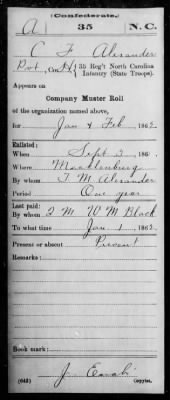 (Confederate.)
A 35 N.C.
C F Alexander
Pvt, Co. 35 Reg't North Carolina
Infantry (State Troops).
Appears on
Company Muster Roll
of the organization named above,
for Jan & Feb, 1862.
Enlisted:
When Sept 3, 186
Where Mecklenburg
By whom T. M. Alexander
Period One year
Last paid:
By whom 2 M W M Black
To what time Jan 1, 1862.
Present or absent Present
Remarks:
Book mark:
(642) Copyist.